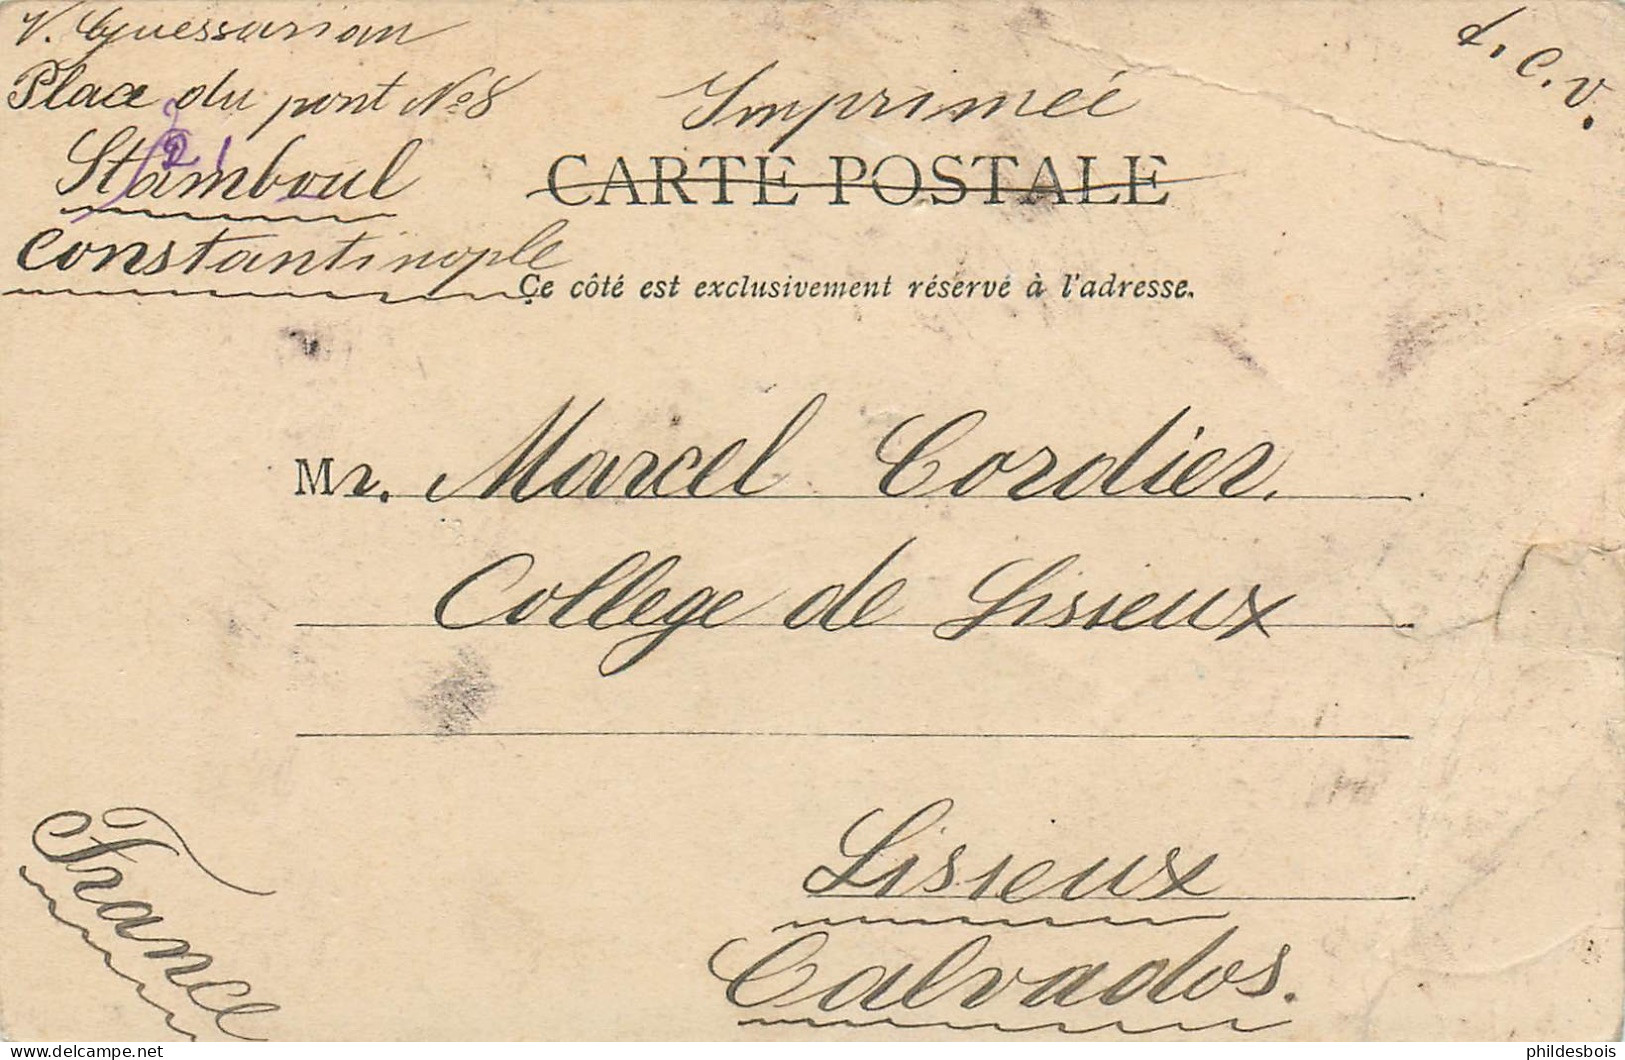 V. Guessarian
Place du pont No 8
Stamboul
Constantinople
Imprimée
CARTE POSTALE
Ce côté est exclusivement réservé à l'adresse.
Mr. Marcel Cordier.
College de Lisieux
Lisieux
Calvados.
France
phildesbois